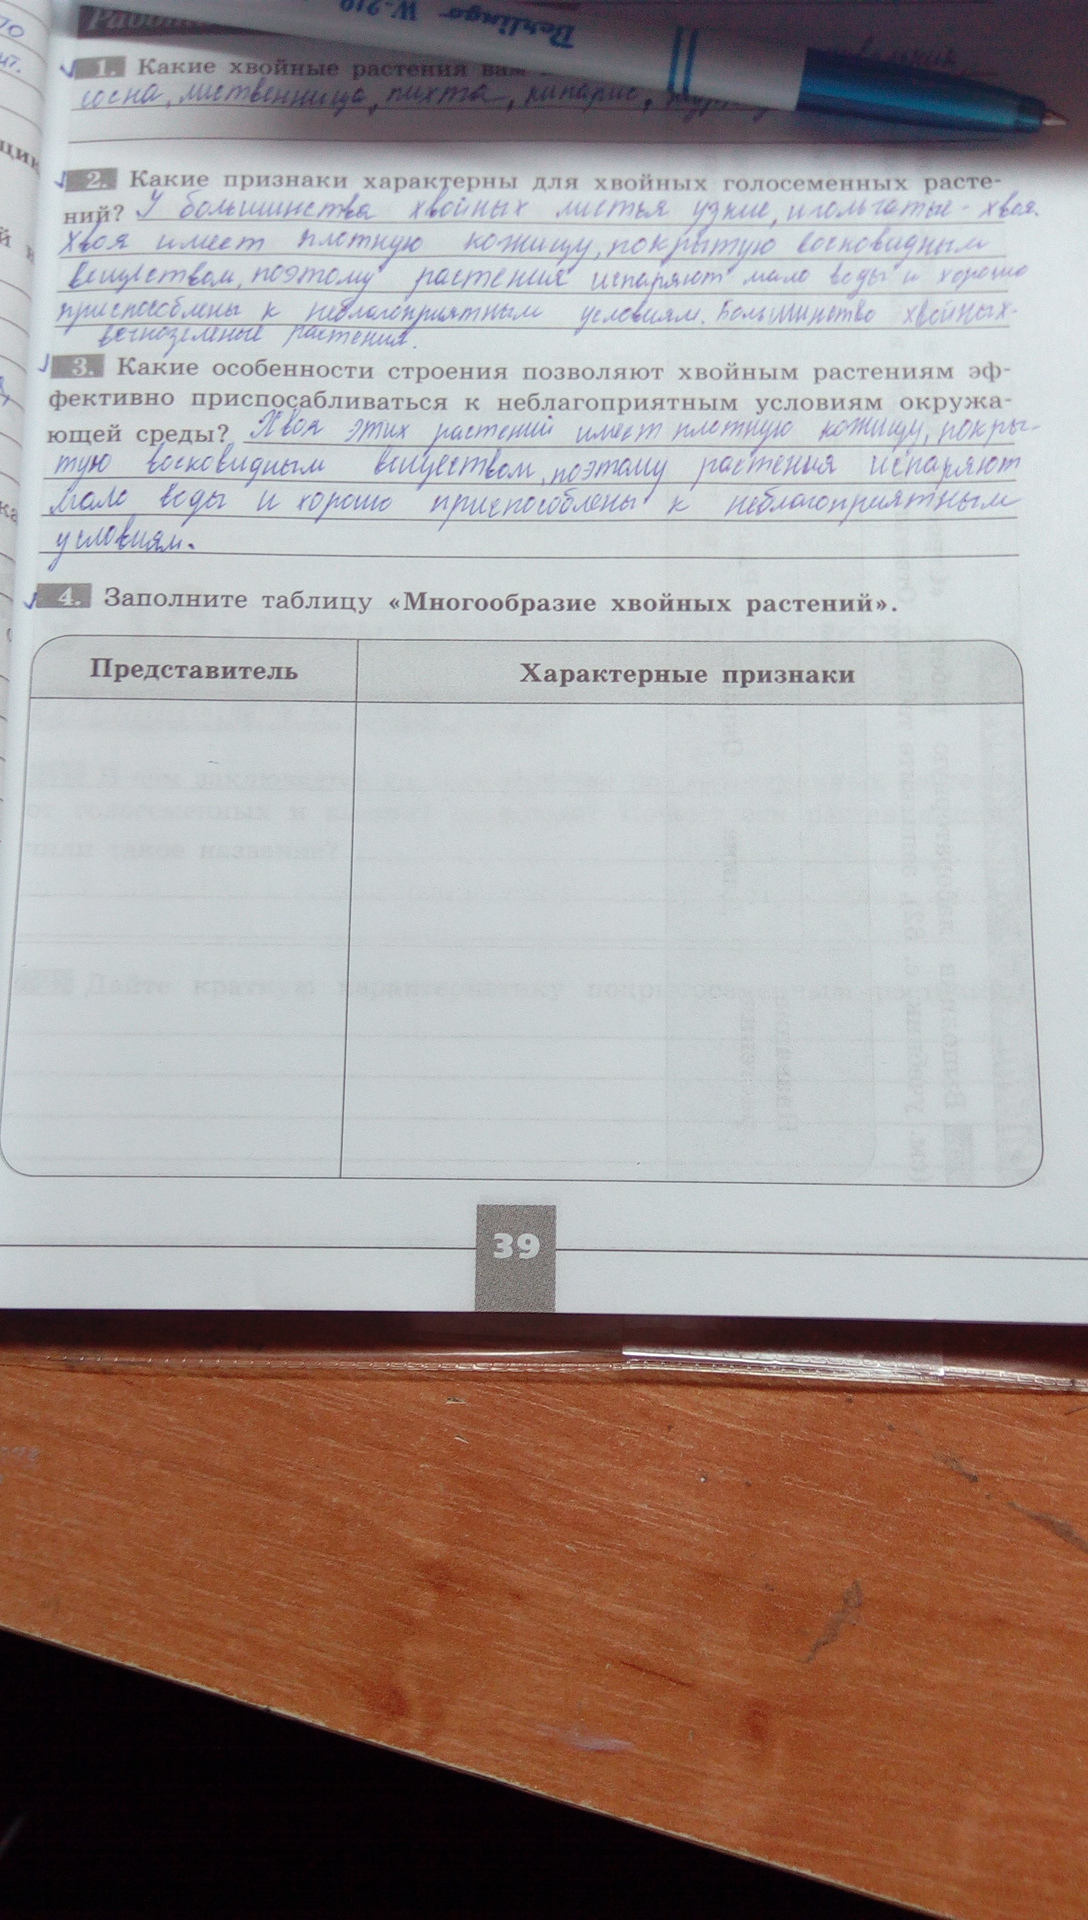 Berlingo W-219
1. Какие хвойные растения вам
сосна, лиственница, пихта, кипарис,
2. Какие признаки характерны для хвойных голосеменных расте-
ний? У большинства хвойных листья узкие, игольчатые - хвоя.
Хвоя имеет плотную кожицу, покрытую восковидным
веществом, поэтому растения испаряют мало воды и хорошо
приспособлены к неблагоприятным условиям. Большинство хвойных-
вечнозелёные растения.
3. Какие особенности строения позволяют хвойным растениям эф-
фективно приспосабливаться к неблагоприятным условиям окружа-
ющей среды? Хвоя этих растений имеет плотную кожицу, покры-
тую восковидным веществом, поэтому растения испаряют
мало воды и хорошо приспособлены к неблагоприятным
условиям.
4. Заполните таблицу «Многообразие хвойных растений».
Представитель Характерные признаки
39